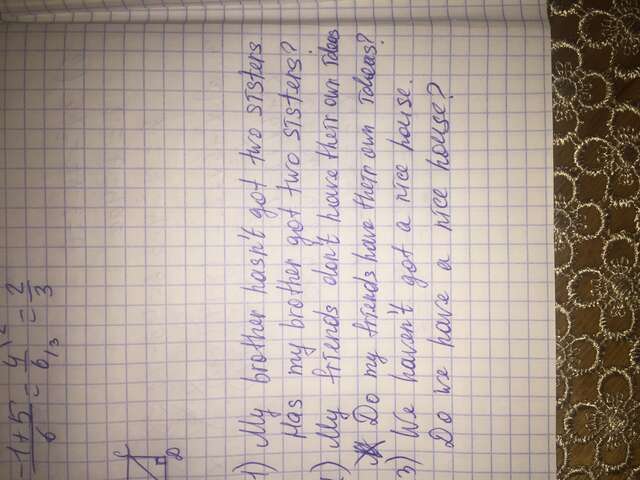 -1+5/6 = 4\2/6/3 = 2/3
D
1) My brother hasn't got two sisters
Has my brother got two sisters?
) My friends don't have their own ideas
Do my friends have their own ideas?
3) We haven't got a nice house.
Do we have a nice house?